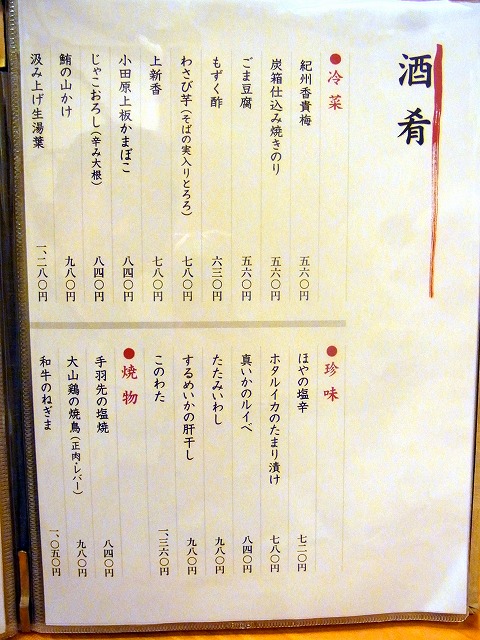 酒肴
●冷菜
紀州香貴梅 五六〇円
炭箱仕込み焼きのり 五六〇円
ごま豆腐 五六〇円
もずく酢 六三〇円
わさび芋(そばの実入りとろろ) 七八〇円
上新香 七八〇円
小田原上板かまぼこ 八四〇円
じゃこおろし(辛み大根) 八四〇円
鮪の山かけ 九八〇円
汲み上げ生湯葉 一、二八〇円
●珍味
ほやの塩辛 七二〇円
ホタルイカのたまり漬け 七八〇円
真いかのルイベ 八四〇円
たたみいわし 九八〇円
するめいかの肝干し 九八〇円
このわた 一、三六〇円
●焼物
手羽先の塩焼 八四〇円
大山鶏の焼鳥(正肉・レバー) 九八〇円
和牛のねぎま 一、〇五〇円